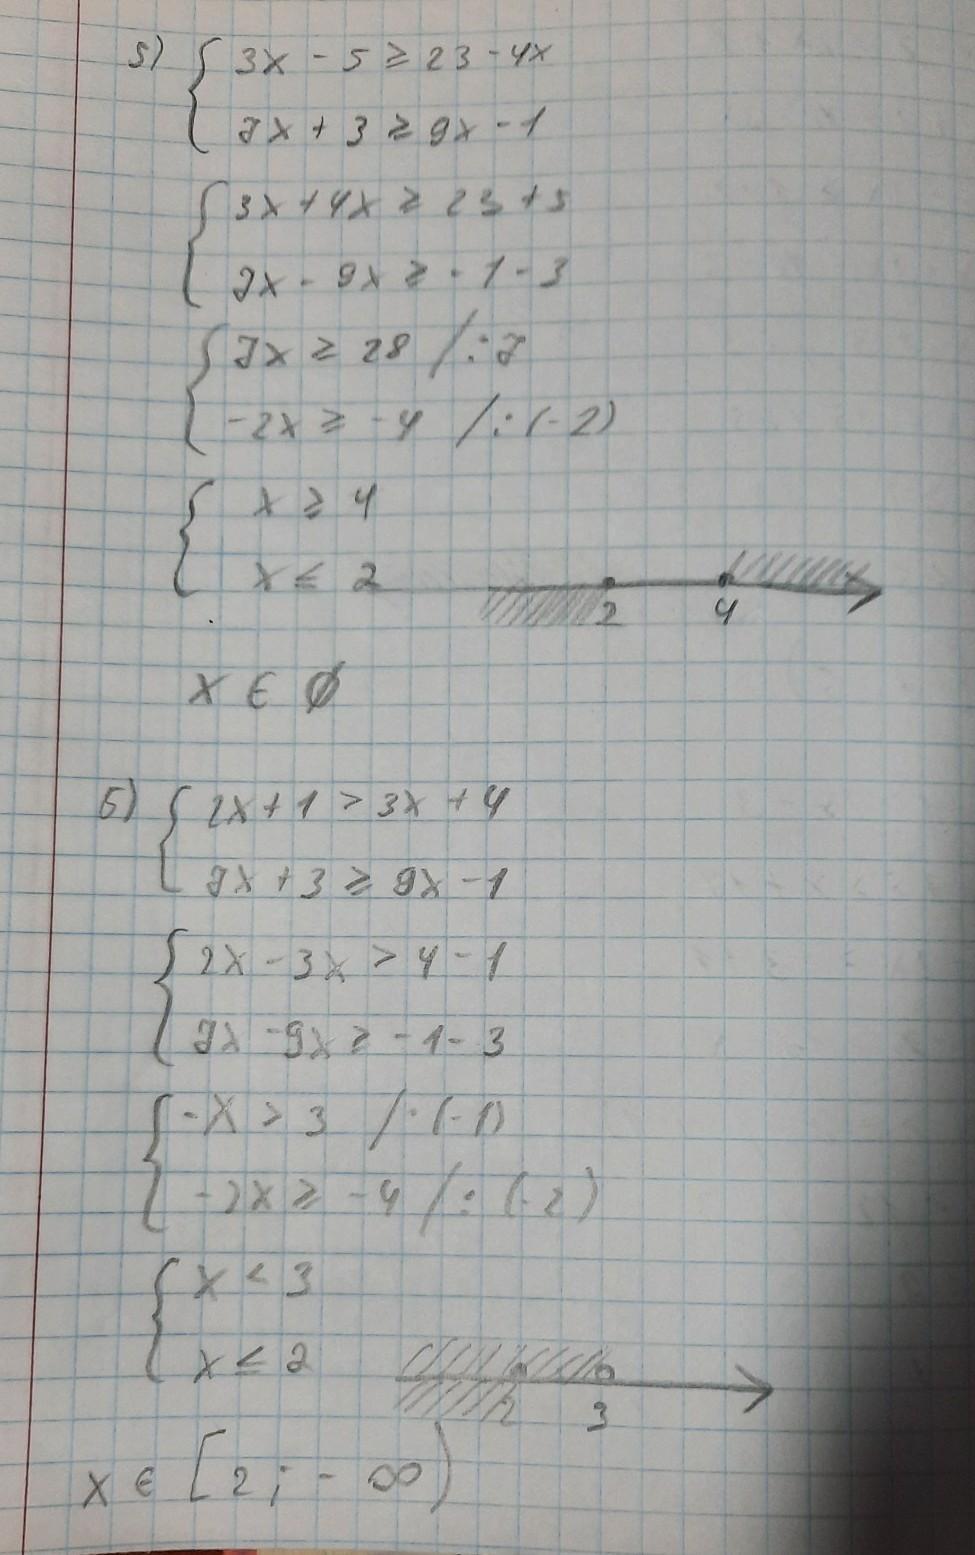 5) { 3x - 5 ≥ 23 - 4x
7x + 3 ≥ 9x - 1
{ 3x + 4x ≥ 23 + 5
7x - 9x ≥ - 1 - 3
{ 7x ≥ 28 / : 7
-2x ≥ -4 / : (-2)
{ x ≥ 4
x ≤ 2
2 4
x ∈ ∅
6) { 2x + 1 > 3x + 4
7x + 3 ≥ 9x - 1
{ 2x - 3x > 4 - 1
7x - 9x ≥ - 1 - 3
{ -x > 3 / · (-1)
-2x ≥ -4 / : (-2)
{ x < 3
x ≤ 2
2 3
x ∈ [2 ; - ∞)